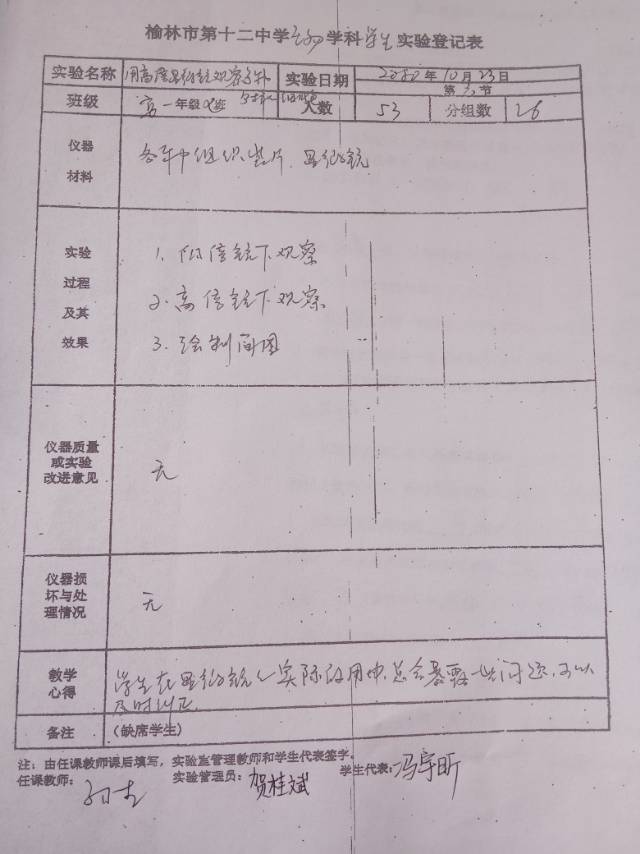 榆林市第十二中学生物学科学生实验登记表
实验名称 用高倍显微镜观察 实验日期 2020年10月23日
第六节
班级 高一年级 班 人数 53 分组数 26
仪器 各种组织装片、显微镜
材料
实验 1. 低倍镜下观察
过程 2. 高倍镜下观察
及其 3. 绘制简图
效果
仪器质量
或实验 无
改进意见
仪器损
坏与处 无
理情况
教学 学生在显微镜 实际使用中总会暴露一些问题,可以
心得 及时纠正
备注 (缺席学生)
注:由任课教师课后填写,实验室管理教师和学生代表签字。
任课教师: 实验管理员:贺桂斌 学生代表:冯宇昕